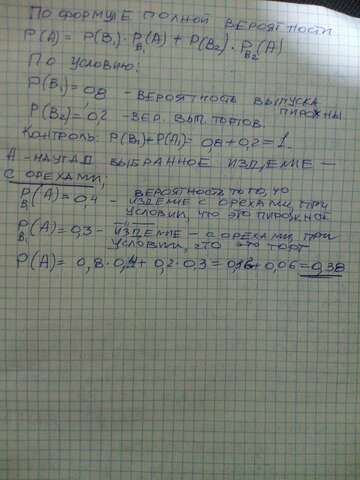 ПО ФОРМУЛЕ ПОЛНОЙ ВЕРОЯТНОСТИ
P(A) = P(B₁)·P_B₁(A) + P(B₂)·P_B₂(A)
ПО УСЛОВИЮ:
P(B₁) = 0,8 - ВЕРОЯТНОСТЬ ВЫПУСКА ПИРОЖНЫ
P(B₂) = 0,2 - ВЕР. ВЫП. ТОРТОВ.
КОНТРОЛЬ: P(B₁)+P(A₁) = 0,8+0,2 = 1.
A - НАУГАД ВЫБРАННОЕ ИЗДЕЛИЕ -
С ОРЕХАМИ;
P_B₁(A) = 0,4 - ВЕРОЯТНОСТЬ ТОГО, ЧТО
ИЗДЕЛИЕ С ОРЕХАМИ, ПРИ
УСЛОВИИ, ЧТО ЭТО ПИРОЖНОЕ
P_B₁(A) = 0,3 - ИЗДЕЛИЕ - С ОРЕХАМИ, ПРИ
УСЛОВИИ, ЧТО ЭТО ТОРТ
P(A) = 0,8·0,4 + 0,2·0,3 = + 0,06 = 0,38